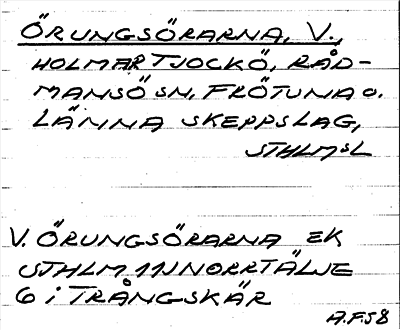 ÖRUNGSÖRARNA, V.,
HOLMAR TJOCKÖ, RÅD-
MANSÖ SN, FRÖTUNA O.
LÄNNA SKEPPSLAG,
STHLMS L
V. ÖRUNGSÖRARNA EK
STHLM 11J NORRTÄLJE
6 i TRÅNGSKÄR
A.F.58